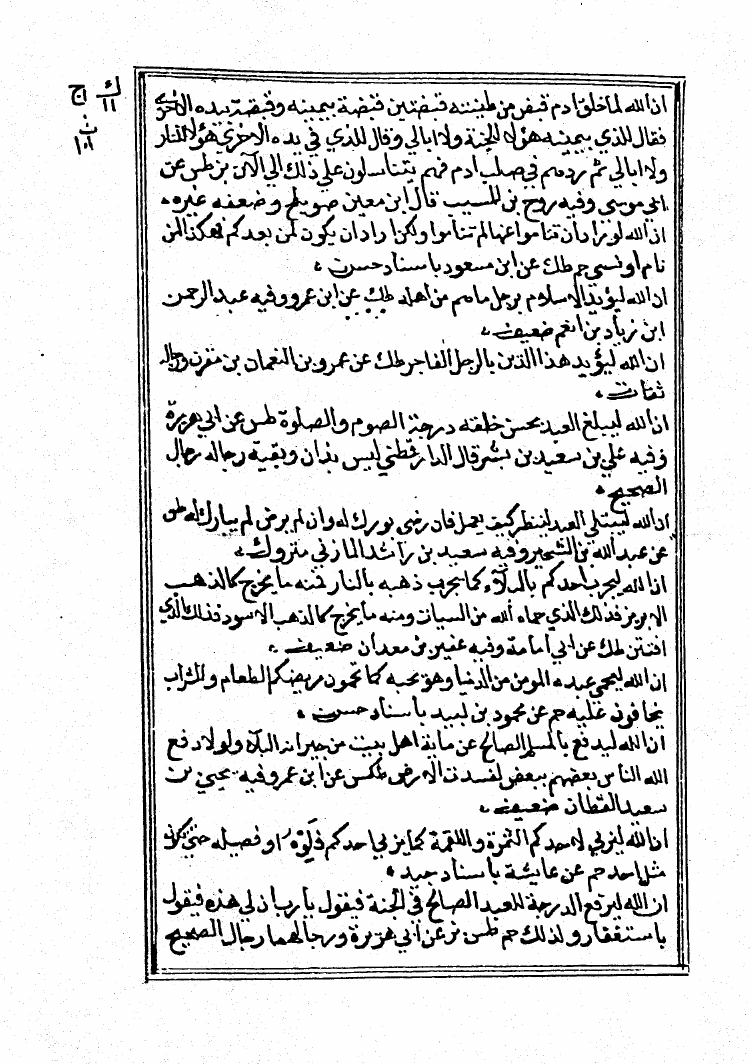 ان الله لما خلق ادم قبض من طينته قبضتين قبضة بيمينه وقبضة بيده الاخرى
فقال للذي بيمينه هؤلا الجنة ولا ابالي وقال للذي في يده الاخرى هؤلا للنار
ولا ابالي ثم ردهم في صلب ادم فهم يتناسلون على ذلك الى الآن بز طس عن
ابي موسى وفيه روح بن المسيب قال ابن معين صويلح وضعفه غيره
ان الله لو اراد أن تناموا عنها لم تناموا ولكن اراد ان يكون لمن بعدكم فهكذا لمن
نام او نسي حم طك عن ابن مسعود باسناد حسن
ان الله ليؤيد الاسلام برجل ما هم من اهله طك عن ابن عمرو وفيه عبد الرحمن
ابن زياد بن انعم ضعيف
ان الله ليؤيد هذا الدين بالرجل الفاجر طك عن عمرو بن النعمان بن مقرن ورجاله
ثقات
ان الله ليبلغ العبد بحسن خلقه درجة الصوم والصلوة طس عن ابي هريرة
وفيه علي بن سعيد بن بشر قال الدارقطني ليس بذاك وبقية رجاله رجال
الصحيح
ان الله ليبتلي العبد لينظر كيف يعمل فان رضى بورك له وان لم يرض لم يبارك له طس
عن عبد الله بن الشخير وفيه سعيد بن راشد المازني متروك
ان الله ليجرب احدكم بالبلاء كما يجرب ذهبه بالنار فمنه ما يخرج كالذهب
الابريز فذلك الذي حماه الله من السيات ومنه ما يخرج كالذهب الاسود فذلك الذي
افتتن طك عن ابي امامة وفيه عفير بن معدان ضعيف
ان الله ليحمي عبده المومن من الدنيا وهو يحبه كما تحمون مريضكم الطعام والشراب
تخافون عليه حم عن محمود بن لبيد باسناد حسن
ان الله ليدفع بالمسلم الصالح عن ماية اهل بيت من جيرانه البلاء ولولا دفع
الله الناس بعضهم ببعض لفسدت الارض طكس عن ابن عمر وفيه يحيى بن
سعيد القطان ضعيف
ان الله ليربي لاحدكم التمرة واللقمة كما يربي احدكم فلوه او فصيله حتى تكون
مثل احد حم عن عايشة باسناد جيد
ان الله ليرفع الدرجة للعبد الصالح في الجنة فيقول يا رب ان لي هذه فيقول
باستغفار ولدك حم طس بز عن ابي هريرة ورجالهما رجال الصحيح